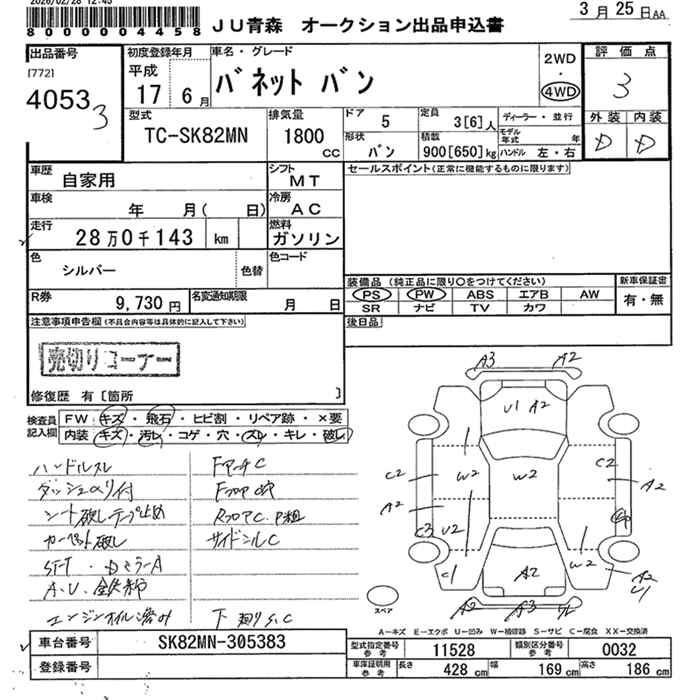 2026/02/28 12:45
800000004458
JU青森 オークション出品申込書
3月25日AA
出品番号
[772]
4053
3
初度登録年月
平成
17 6月
車名・グレード
バネット バン
2WD
・
4WD
評価点
3
型式
TC-SK82MN
排気量
1800
cc
ドア 5
形状 バン
定員 3[6]人
積載 900[650]kg
ディーラー・並行
モデル年式 年
ハンドル 左・右
外装 内装
D D
車歴
自家用
シフト
MT
セールスポイント(正常に機能するものに限ります)
車検
年 月( 日)
冷房
AC
走行
28万0千143 km
燃料
ガソリン
色
シルバー
色替
色コード
装備品(純正品に限り○をつけてください)
新車保証書
PS PW ABS エアB AW
SR ナビ TV カワ
有・無
R券
9,730円
名変通知期限
月 日
後日品
注意事項申告欄(不具合内容等は具体的に記入して下さい)
売切りコーナー
修復歴 有[箇所 ]
検査員記入欄
FW:キズ・飛石・ヒビ割・リペア跡・×要
内装:キズ・汚レ・コゲ・穴・スレ・キレ・破レ
ハンドルスレ
シート破レテープ止め
カーペット破レ
サイドシルC
A3 A2
U1 A2
C2 W2 W2 C2
A2 A2
C3 U2
C1 W2
A2 A2 U1
A2 A3
スペア
A-キズ E-エクボ U-凹み W-補修跡 S-サビ C-腐食 XX-交換済
車台番号
SK82MN-305383
登録番号
型式指定番号参考
11528
類別区分番号参考
0032
車庫証明用参考
長さ 428 cm
幅 169 cm
高さ 186 cm